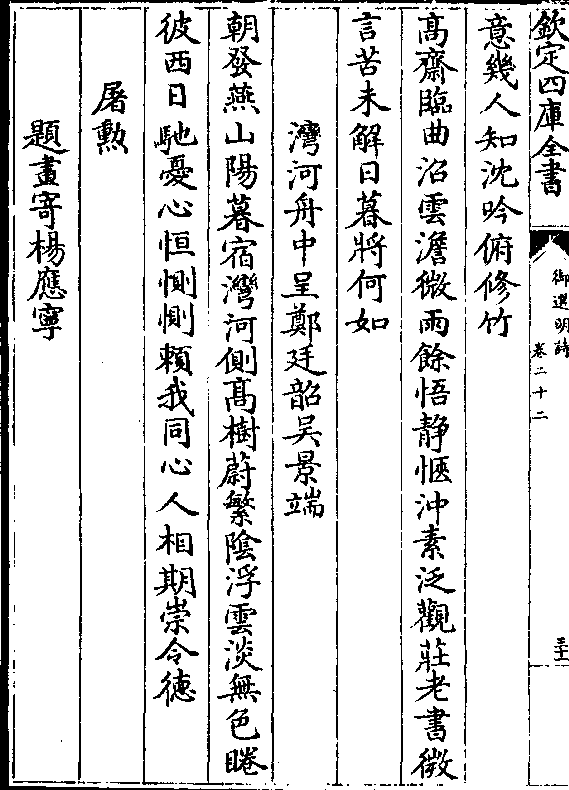 欽定四庫全書
御選明詩
卷二十二
三十一
意幾人知沈吟俯修竹
髙齋臨曲沼雲澹微雨餘悟静愜沖素泛觀莊老書微
言苦未解日暮將何如
灣河舟中呈鄭廷韶吴景端
朝發燕山陽暮宿灣河側髙樹蔚繁陰浮雲淡無色睠
彼西日馳憂心恒惻惻頼我同心人相期崇令徳
屠勲
題畫寄楊應寧